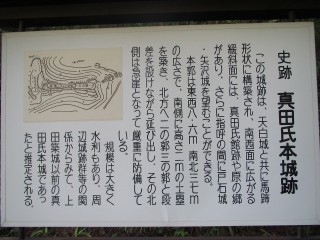 史跡 真田氏本城跡
この城跡は、天白城と共に馬蹄
形状に構築され、南西面に広がる
緩斜面には、真田氏館跡や原の郷
があり、さらに指呼の間に戸石城
・矢沢城を望むことができる。
本郭は東西八・六m 南北三七m
の広さで、南側に高さ二mの土塁
を築き、北方へ二の郭三の郭と段
差を設けながら延び出し、その北
側は急崖となって厳重に防備して
いる。
規模は大きく
水利もあり、周
辺城跡群等の関
係からみて、上
田築城以前の真
田氏本城であっ
たと推定される。